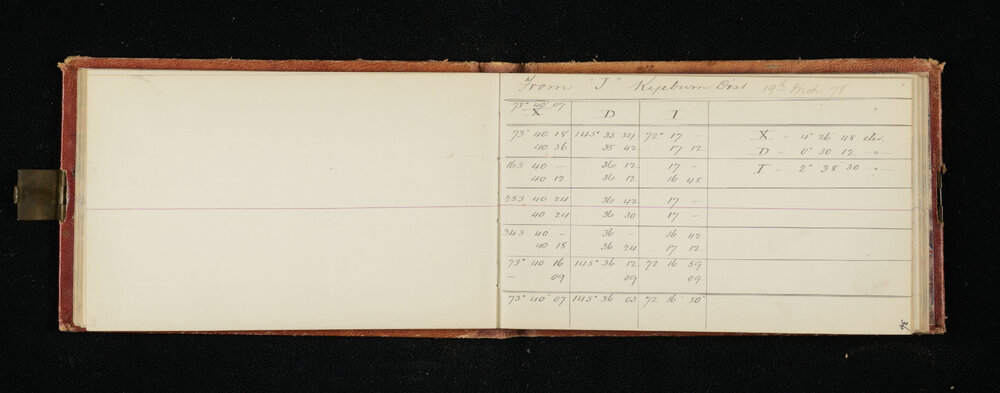 From "J" Kyeburn Dist 19th Mch 78
73° 40' 07
X D I
73° 40 18 145° 35 54 72° 17 – X – 4° 26' 48 elev.
40 36 35 42 17 12 D – 0° 30 12 –"–
163 40 – 36 12 17 – I – 2° 38' 30 –"–
40 12 36 12 16 48
253 40 24 36 42 17 –
40 24 36 30 17 –
343 40 – 36 – 16 42
40 18 36 24 17 12
73° 40 16 145° 36 12 72 16 59
– 09 09 09
73° 40' 07 145° 36 03 72 16 50
36